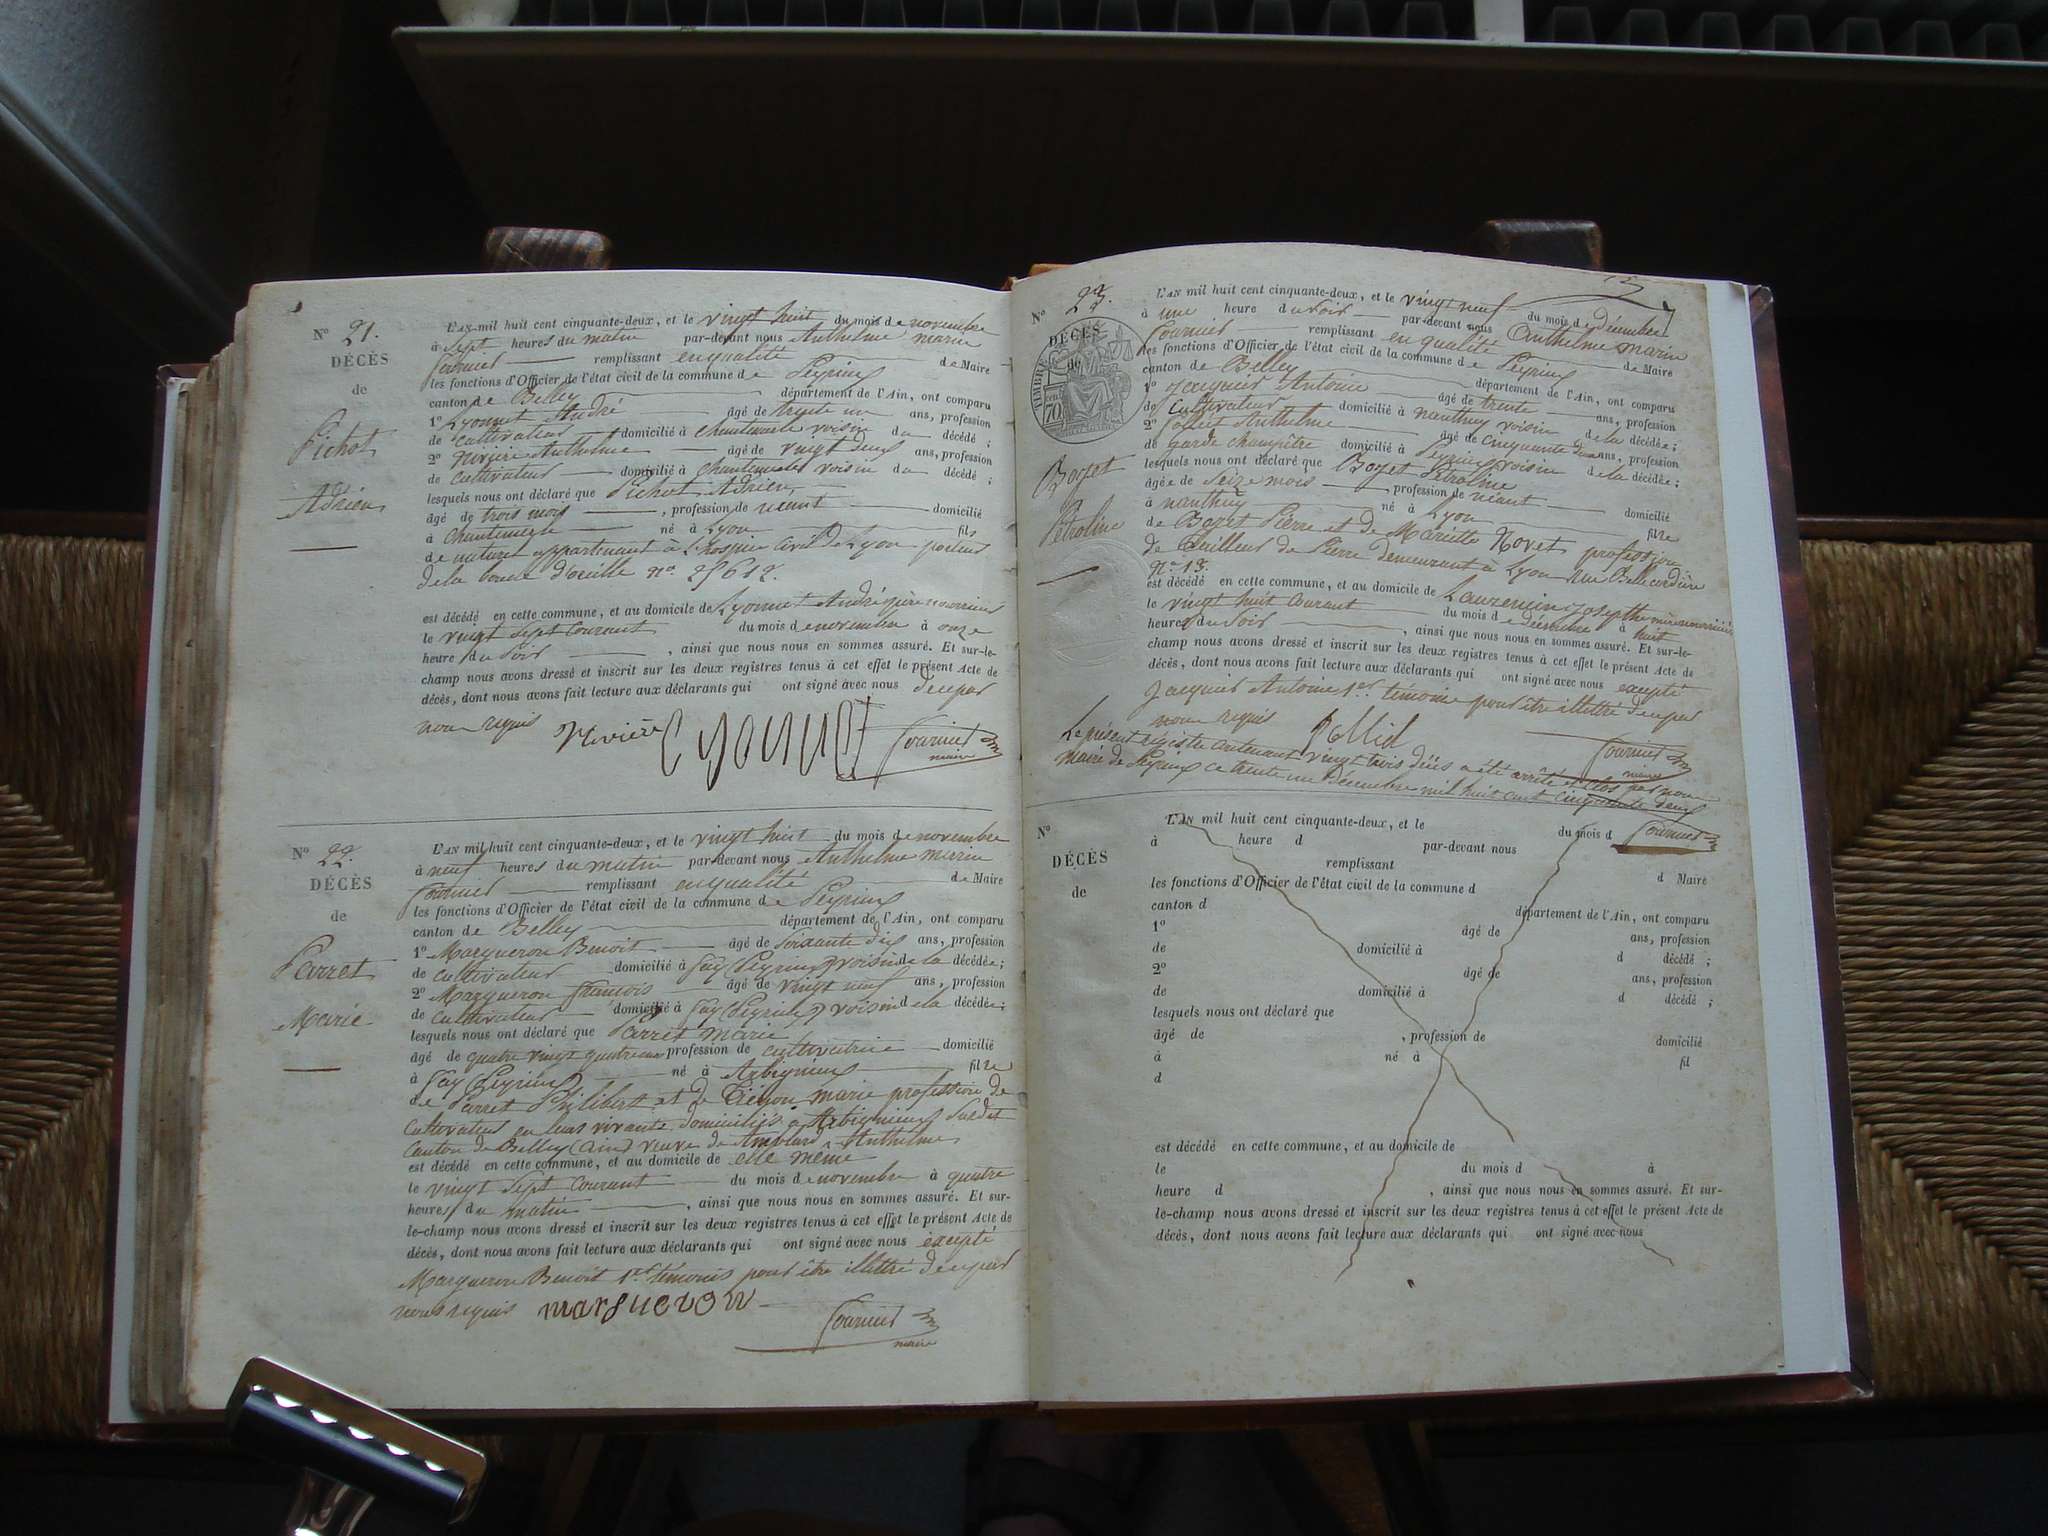 N° 21.
DÉCÈS
de
Pichot
Adrien
L'AN mil huit cent cinquante-deux, et le vingt huit du mois de novembre
à sept heures du matin par-devant nous Anthelme marin
Fournier remplissant en qualité de Maire
les fonctions d'Officier de l'état civil de la commune de Peyrieux
canton de Belley département de l'Ain, ont comparu
1° Lyonnet André âgé de trente un ans, profession
de cultivateur domicilié à Chantemerle voisin du décédé ;
2° Rivière Anthelme âgé de vingt deux ans, profession
de cultivateur domicilié à Chantemerle voisin du décédé ;
lesquels nous ont déclaré que Pichot Adrien
âgé de trois mois , profession de néant domicilié
à Chantemerle né à Lyon fils
de naturel appartenant à l'hospice civil de Lyon porteur
de la boucle d'oreille n°
est décédé en cette commune, et au domicile de Lyonnet André père nourricier
le vingt sept courant du mois de novembre à onze
heure du soir , ainsi que nous nous en sommes assuré. Et sur-le-
champ nous avons dressé et inscrit sur les deux registres tenus à cet effet le présent Acte de
décès, dont nous avons fait lecture aux déclarants qui ont signé avec nous de ce par
nous requis Rivière Lyonnet Fournier
maire
N° 22.
DÉCÈS
de
Parret
Marie
L'AN mil huit cent cinquante-deux, et le vingt huit du mois de novembre
à neuf heures du matin par-devant nous Anthelme marin
Fournier remplissant en qualité de Maire
les fonctions d'Officier de l'état civil de la commune de Peyrieux
canton de Belley département de l'Ain, ont comparu
1° Margueron Benoit âgé de soixante dix ans, profession
de cultivateur domicilié à Fay (Peyrieux) voisin de la décédée;
2° Margueron François âgé de vingt neuf ans, profession
de cultivateur domicilié à Fay (Peyrieux) voisin de la décédée;
lesquels nous ont déclaré que Parret Marie
âgé de quatre vingt quatre ans profession de cultivatrice domicilié
à Fay (Peyrieux) né à Arbignieux fille
de Parret Philibert et de marie profession de
cultivateurs en leurs vivants domiciliés à Arbignieux susdit
Canton de Belley (ain) veuve de Amblard Anthelme
est décédé en cette commune, et au domicile de elle même
le vingt sept courant du mois de novembre à quatre
heures du matin , ainsi que nous nous en sommes assuré. Et sur-
le-champ nous avons dressé et inscrit sur les deux registres tenus à cet effet le présent Acte de
décès, dont nous avons fait lecture aux déclarants qui ont signé avec nous excepté
Margueron Benoit 1er témoins pour être illettré de ce par
nous requis margueron Fournier
maire
N° 23.
DÉCÈS
de
TIMBRE
70
Bozet
Pétroline
L'AN mil huit cent cinquante-deux, et le vingt neuf du mois de décembre
à une heure du soir par-devant nous Anthelme marin
Fournier remplissant en qualité de Maire
les fonctions d'Officier de l'état civil de la commune de Peyrieux
canton de Belley département de l'Ain, ont comparu
1° Jacquier Antoine âgé de trente ans, profession
de cultivateur domicilié à nanthuy voisin de la décédée;
2° Anthelme âgé de cinquante deux ans, profession
de garde champêtre domicilié à Peyrieux voisin de la décédée;
lesquels nous ont déclaré que Bozet Pétroline
âgée de seize mois , profession de néant domicilié
à nanthuy né à Lyon fille
de Bozet Pierre et de Mariette Novet profession
de tailleur de Pierre demeurant à Lyon rue
n° 13.
est décédé en cette commune, et au domicile de Josephte mère nourricière
le vingt huit courant du mois de décembre à huit
heures du soir , ainsi que nous nous en sommes assuré. Et sur-le-
champ nous avons dressé et inscrit sur les deux registres tenus à cet effet le présent Acte de
décès, dont nous avons fait lecture aux déclarants qui ont signé avec nous excepté
Jacquier Antoine 1er témoins pour être illettré de ce par
nous requis Fournier
maire
Le présent registre contenant vingt trois décès a été arrêté et clos par nous
maire de Peyrieux ce trente un décembre mil huit cent cinquante deux
Fournier
N°
DÉCÈS
de
L'AN mil huit cent cinquante-deux, et le du mois d
à heure d par-devant nous
remplissant d Maire
les fonctions d'Officier de l'état civil de la commune d
canton d département de l'Ain, ont comparu
1° âgé de ans, profession
de domicilié à d décédé ;
2° âgé de ans, profession
de domicilié à d décédé ;
lesquels nous ont déclaré que
âgé de , profession de domicilié
à né à fil
d
est décédé en cette commune, et au domicile de
le du mois d à
heure d , ainsi que nous nous en sommes assuré. Et sur-
le-champ nous avons dressé et inscrit sur les deux registres tenus à cet effet le présent Acte de
décès, dont nous avons fait lecture aux déclarants qui ont signé avec nous